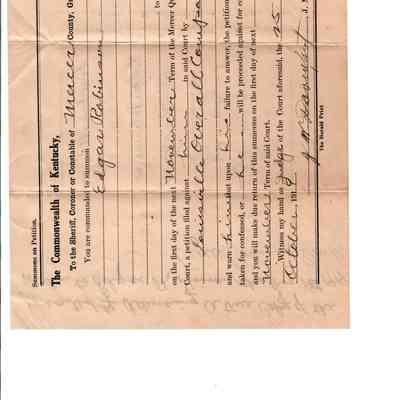 Summons on Petition.
The Commonwealth of Kentucky,
To the Sheriff, Coroner or Constable of Mercer County, Gr
You are commanded to summon
Edgar Robinson
to
on the first day of the next November Term of the Mercer Qu
Court, a petition filed against him in said Court by
Louisville Overall Compa
and warn him that upon his failure to answer, the petition
taken for confessed, or he will be proceeded against for co
and you will make due return of this summons on the first day of next
November Term of said Court.
Witness my hand as Judge of the Court aforesaid, the 25
October 1919
J.
The Herald Print